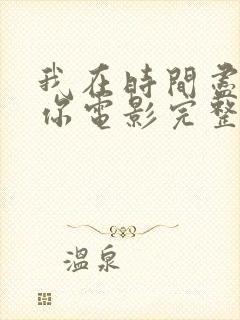 我在時間盡
你電影完整
溫泉